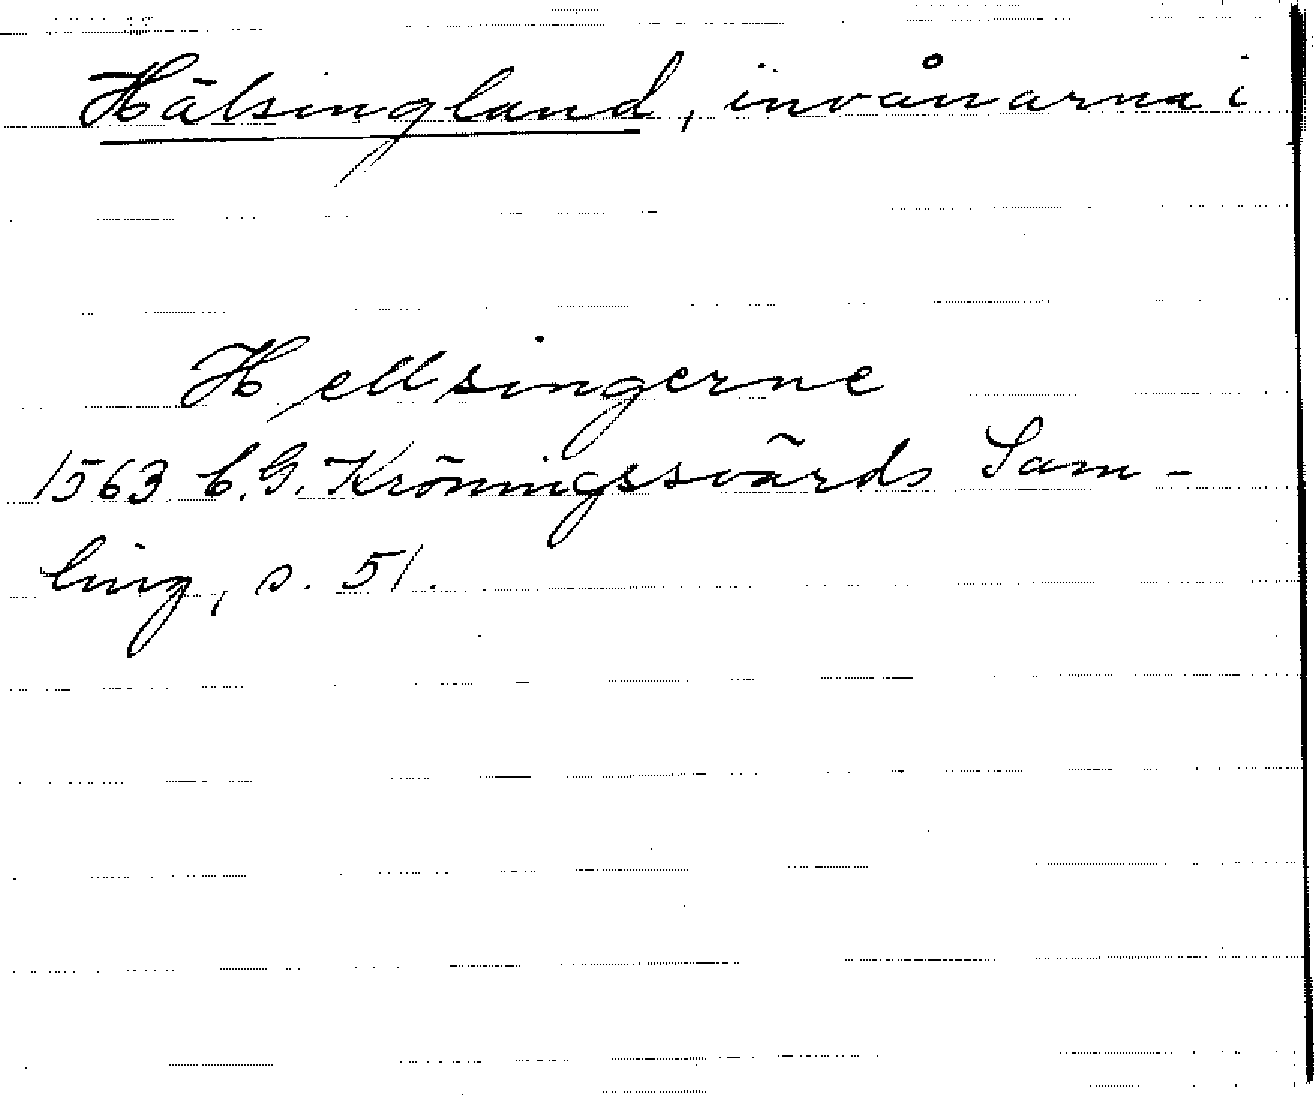 Hälsingland, invånarna i
Hellsingerne
1563 C.G. Kröningssvärds Sam-
ling, s. 51.